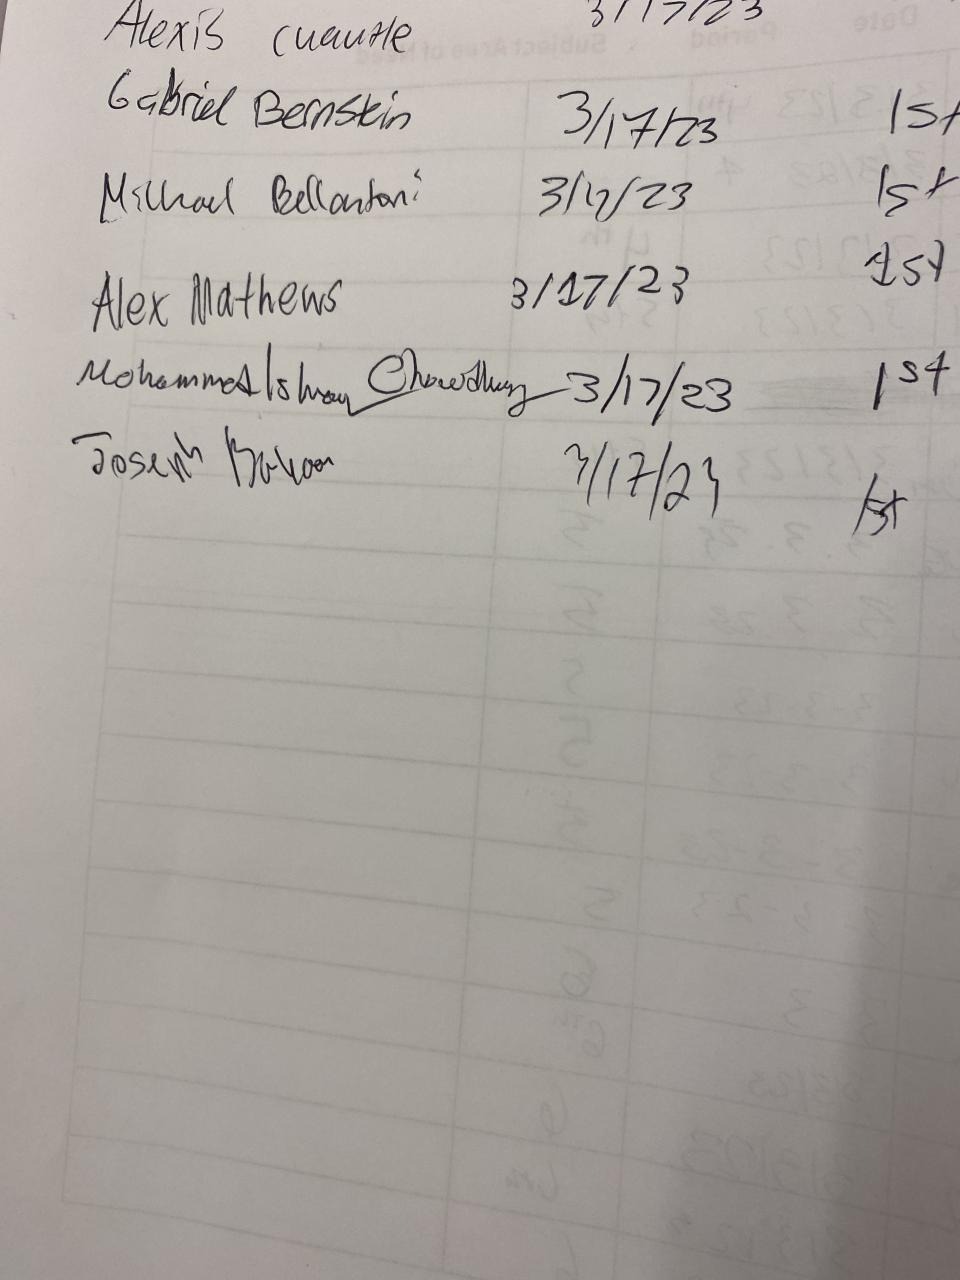 Alexis cuautle 3/17/23
Gabriel Bernstein 3/17/23 1st
Michael Bellantoni 3/17/23 1st
Alex Mathews 3/17/23 1st
Mohammed Chowdhury 3/17/23 1st
Joseph 3/17/23 1st